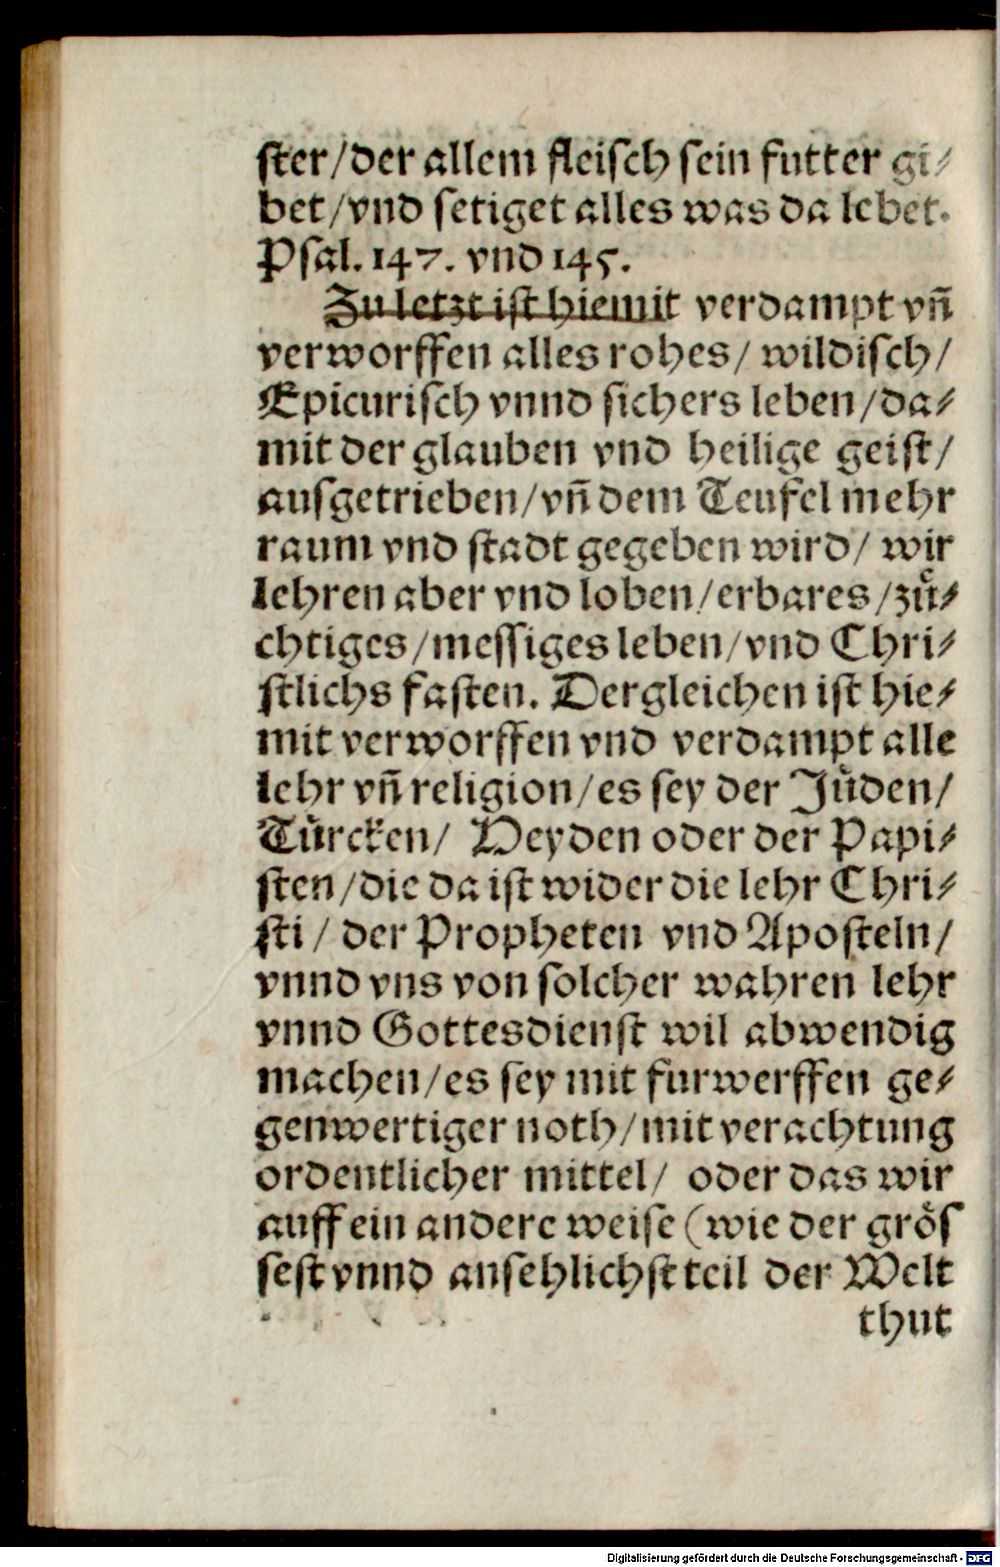 ſter/der allem fleiſch ſein futter gi⸗
bet/vnd ſetiget alles was da lebet.
Pſal. 147. vnd 145.
Zu letzt iſt hiemit verdampt vñ
verworffen alles rohes/ wildiſch/
Epicuriſch vnnd ſichers leben/da⸗
mit der glauben vnd heilige geiſt/
ausgetrieben/vñ dem Teufel mehr
raum vnd ſtadt gegeben wird/ wir
lehren aber vnd loben/erbares/zuͤ⸗
chtiges/meſſiges leben/vnd Chri⸗
ſtlichs faſten. Dergleichen iſt hie⸗
mit verworffen vnd verdampt alle
lehr vñ religion/es ſey der Juͤden/
Tuͤrcken/ Heyden oder der Papi⸗
ſten/die da iſt wider die lehr Chri⸗
ſti/ der Propheten vnd Apoſteln/
vnnd vns von ſolcher wahren lehr
vnnd Gottesdienſt wil abwendig
machen/es ſey mit furwerffen ge⸗
genwertiger noth/mit verachtung
ordentlicher mittel/ oder das wir
auff ein andere weiſe (wie der groͤſ
ſeſt vnnd anſehlichſt teil der Welt
thut
Digitalisierung gefördert durch die Deutsche Forschungsgemeinschaft - DFG